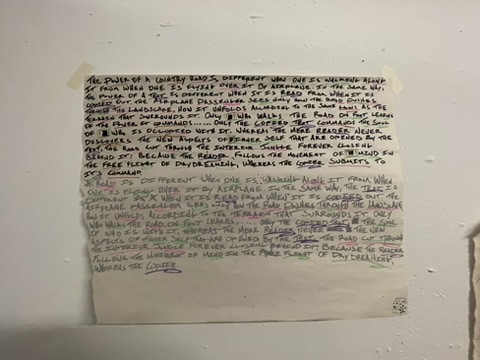 THE POWER OF A COUNTRY ROAD IS DIFFERENT WHEN ONE IS WALKING ALONG
IT FROM WHEN ONE IS FLYING OVER IT BY AIRPLANE. IN THE SAME WAY,
THE POWER OF A TEXT IS DIFFERENT WHEN IT IS READ FROM WHEN IT IS
COPIED OUT. THE AIRPLANE PASSENGER SEES ONLY HOW THE ROAD PUSHES
THROUGH THE LANDSCAPE, HOW IT UNFOLDS ACCORDING TO THE SAME LAWS AS THE
TERRAIN THAT SURROUNDS IT. ONLY WHO WALKS THE ROAD ON FOOT LEARNS
OF THE POWER IT COMMANDS...... ONLY THE COPIED TEXT COMMANDS THE SOUL
OF WHO IS OCCUPIED WITH IT. WHEREAS THE MERE READER NEVER
DISCOVERS THE NEW ASPECTS OF INNER SELF THAT ARE OPENED BY THE
TEXT, THE ROAD CUT THROUGH THE INTERIOR JUNGLE FOREVER CLOSING
BEHIND IT: BECAUSE THE READER FOLLOWS THE MOVEMENT OF MIND IN
THE FREE FLIGHT OF DAYDREAMING, WHEREAS THE COPIER SUBMITS TO
IT'S COMMAND.
ROAD IS DIFFERENT WHEN ONE IS WALKING ALONG IT FROM WHEN
ONE IS FLYING OVER IT BY AIRPLANE. IN THE SAME WAY, THE TEXT IS
DIFFERENT WHEN IT IS READ FROM WHEN IT IS COPIED OUT THE
AIRPLANE PASSENGER SEES HOW THE ROAD PUSHES THROUGH THE LANDSCAPE
HOW IT UNFOLDS ACCORDING TO THE TERRAIN THAT SURROUNDS IT ONLY
WHO WALKS THE ROAD ON FOOT LEARNS ...... ONLY THE COPIED TEXT THE SOUL
WHO IS WITH IT WHEREAS THE MERE READER NEVER THE NEW
ASPECTS OF INNER SELF THAT ARE OPENED BY THE TEXT, THE ROAD CUT THROUGH
THE INTERIOR JUNGLE FOREVER CLOSING BEHIND IT: BECAUSE THE READER
FOLLOWS THE MOVEMENT OF MIND IN THE FREE FLIGHT OF DAYDREAMING
WHEREAS THE COPIER